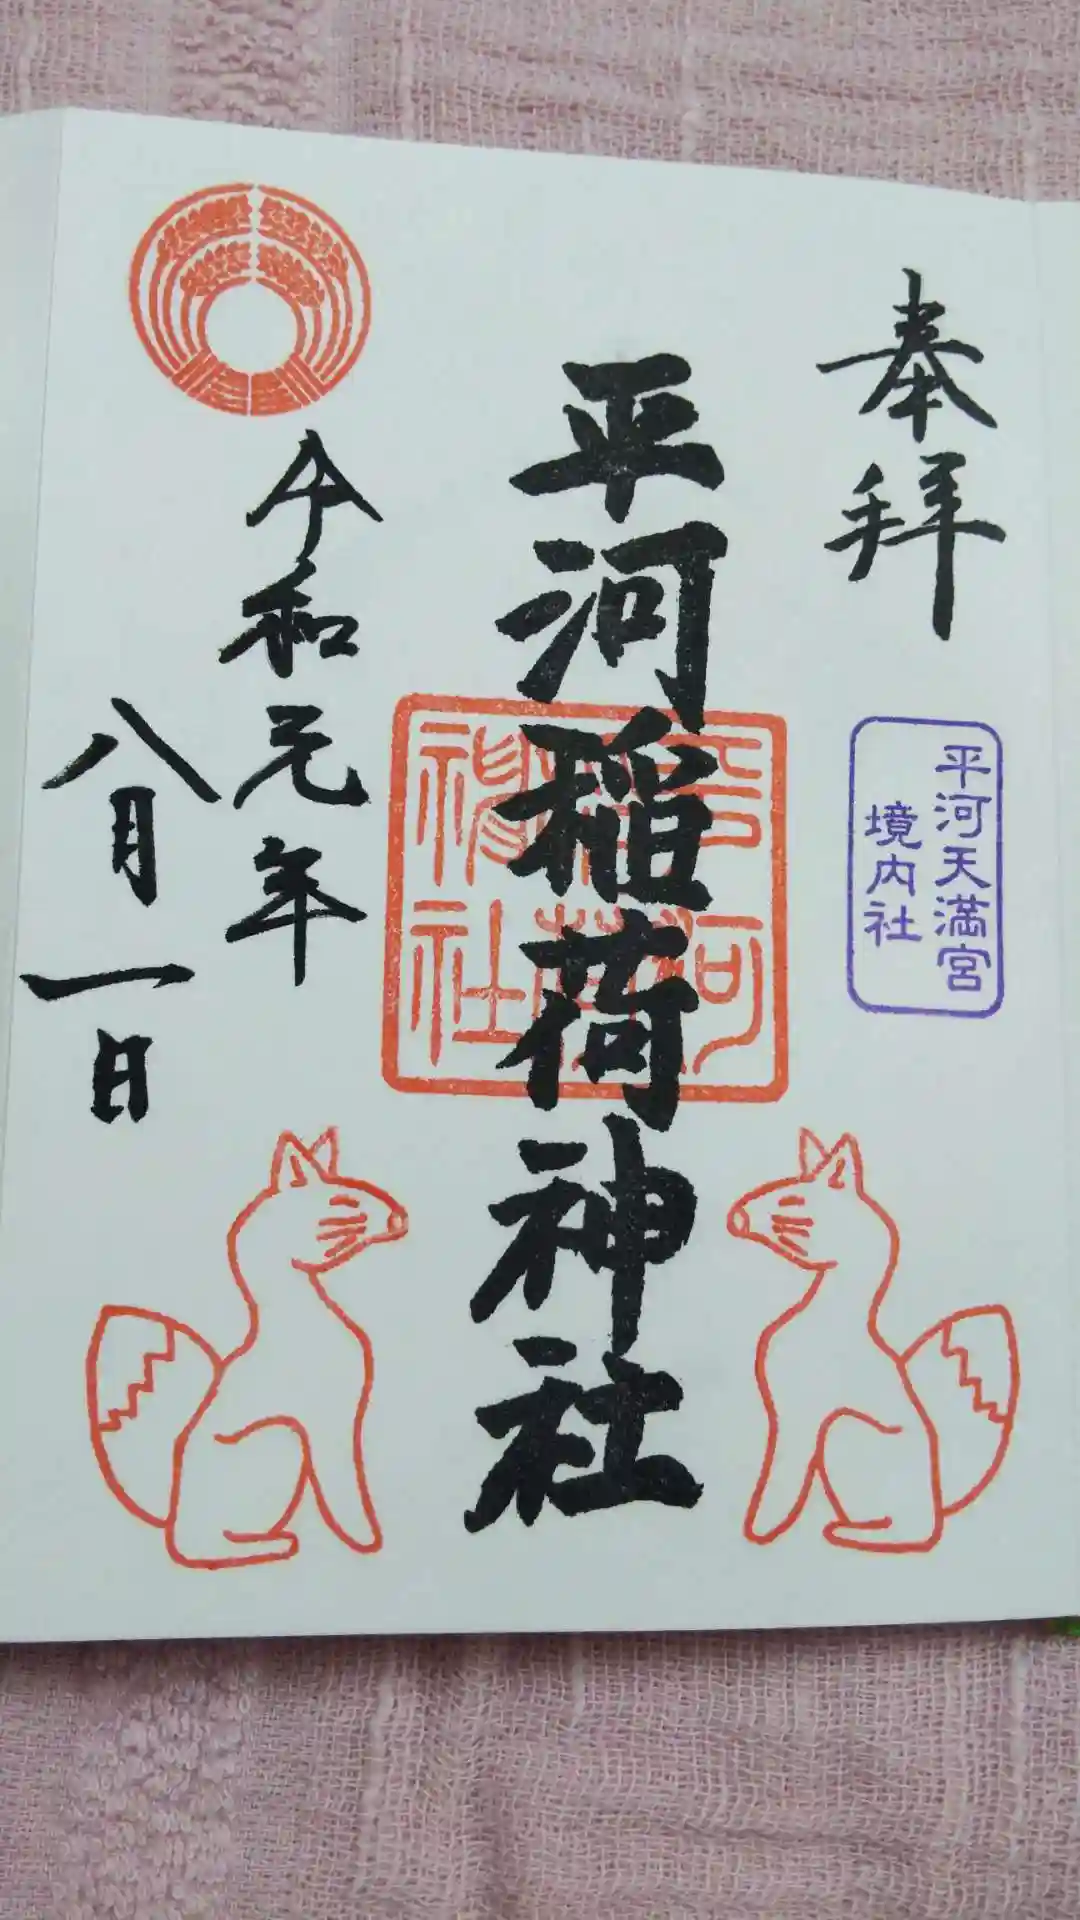 奉拝
平河天満宮
境内社
平河稲荷神社
平河
稲荷
神社
令和元年
八月一日